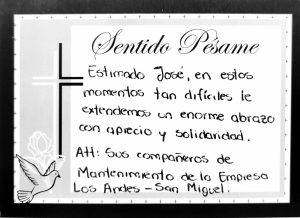 Sentido Pésame
Estimado José, en estos
momentos tan difíciles le
extendemos un enorme abrazo
con aprecio y solidaridad.
Att: Sus compañeros de
Mantenimiento de la Empresa
Los Andes - San Miguel.